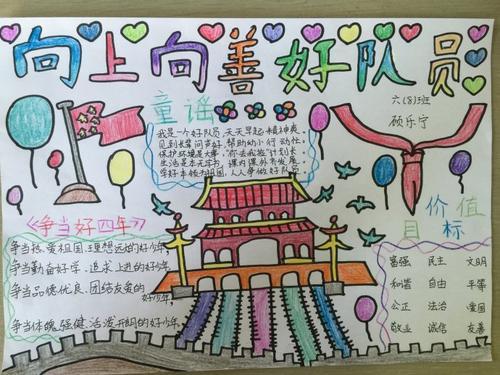 向上向善好队员
六(8)班
顾乐宁
童谣
我是一个好队员,天天早起精神爽
见到长辈问声好,帮助幼小行动忙
保护环境是大事,
生活是本无字书,课内课外有发展
学好本领为祖国,人人争做好队员
《争当好四年》
争当热爱祖国、理想远大的好少年
争当勤奋好学、追求上进的好少年
争当品德优良、团结友爱的
好少年
争当体魄强健、活泼开朗的好少年
价值
目标
富强 民主 文明
和谐 自由 平等
公正 法治 爱国
敬业 诚信 友善